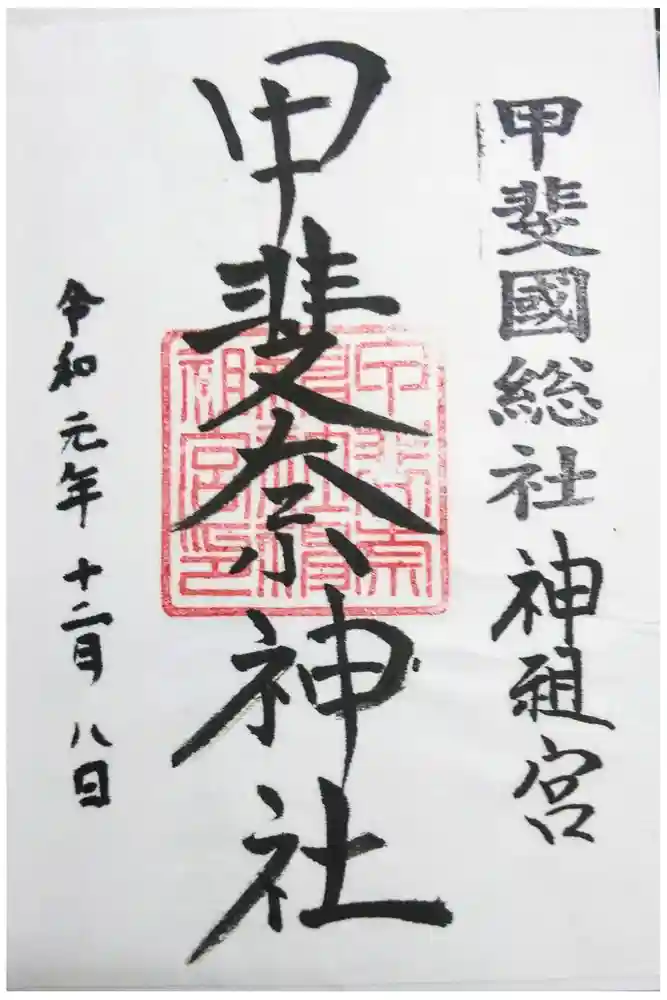 甲斐國総社神祖宮
甲斐奈神社
令和元年十二月八日